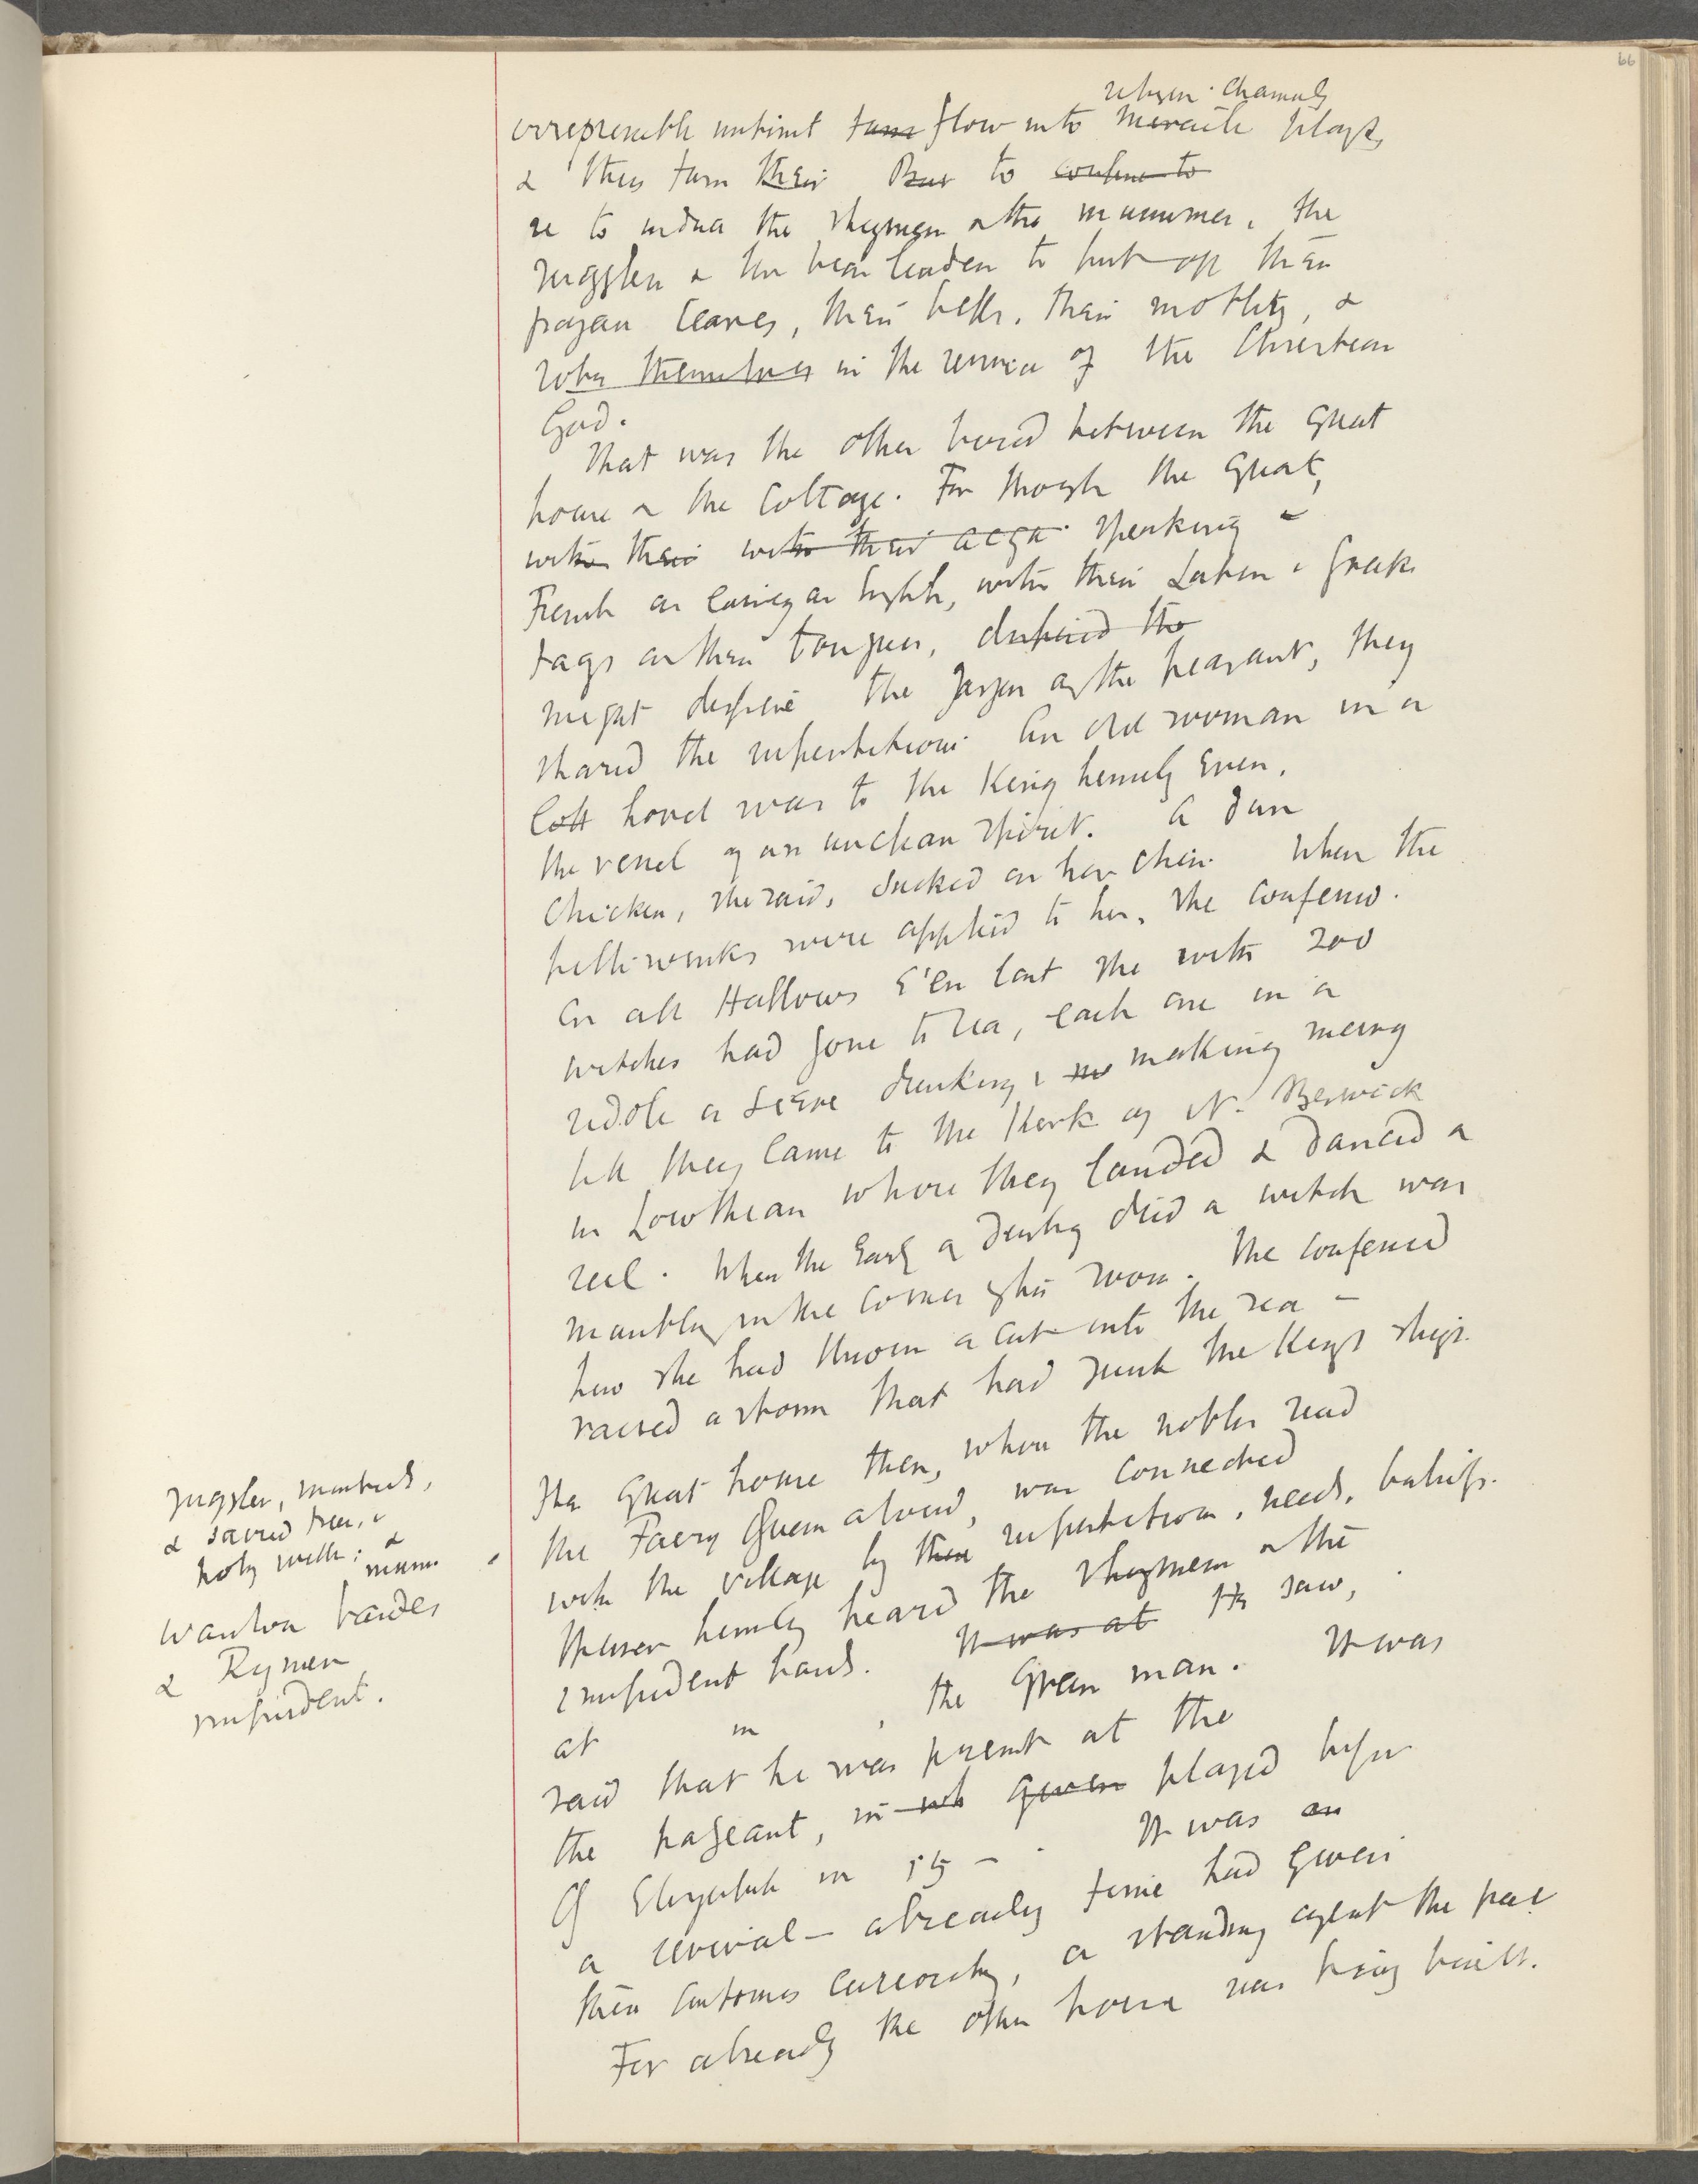 66
religious channels
irrepressible instinct turn flow into miracle plays,
& thus turn their But to confine to
se to induce the rhymer & the mummer, the
juggler & the bear leader to put off their
pagan leaves, their bells, their motley, &
robe themselves in the service of the Christian
God.
That was the other bond between the great
house & the cottage. For though the great,
with their with their acqa speaking
French as easily as English, with their Latin & Greek
tags on their tongues, despised the
might despise the jargon of the peasant, they
shared the superstitions. An old woman in a
cott hovel was to the King himself even,
the vessel of an unclean spirit. A dun
chicken, she said, sucked on her chin. When the
pilliwinks were applied to her, she confessed.
On all Hallows E'en last she with 200
witches had gone to sea, each one in a
riddle or sieve drinking & m making merry
till they came to the Kerk of N. Berwick
in Lowthian where they landed & danced a
reel. When the Earl of Derby died a witch was
mumbling in the corner of his room. She confessed
how she had thrown a cat into the sea –
raised a storm that had sunk the Kings ships.
The great house then, where the nobles read
the Faery Queen aloud, was connected
with the village by these superstitions, needs, beliefs.
Spenser himself heard the rhymers & the
impudent bards. It was at He saw,
at in , the Green man. It was
said that he was present at the
the pageant, in wh given played before
Q Elizabeth in 15 – . It was an
a revival – already time had given
their antomes curiosity, a standing against the past
For already the other house was being built.
juggler, minstrels,
& sacred trees, &
holy wells: &
mumm
wanton bardes
& Rymers
impudent.